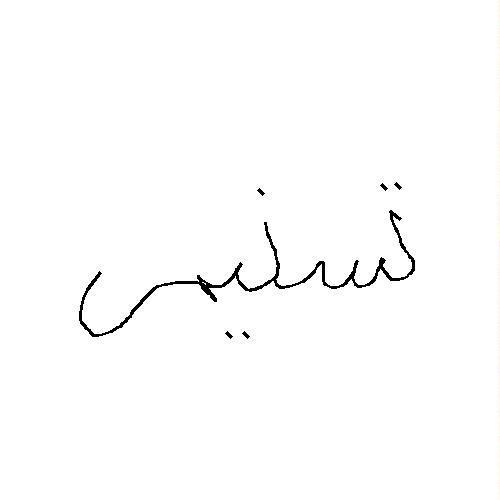 تسنيم